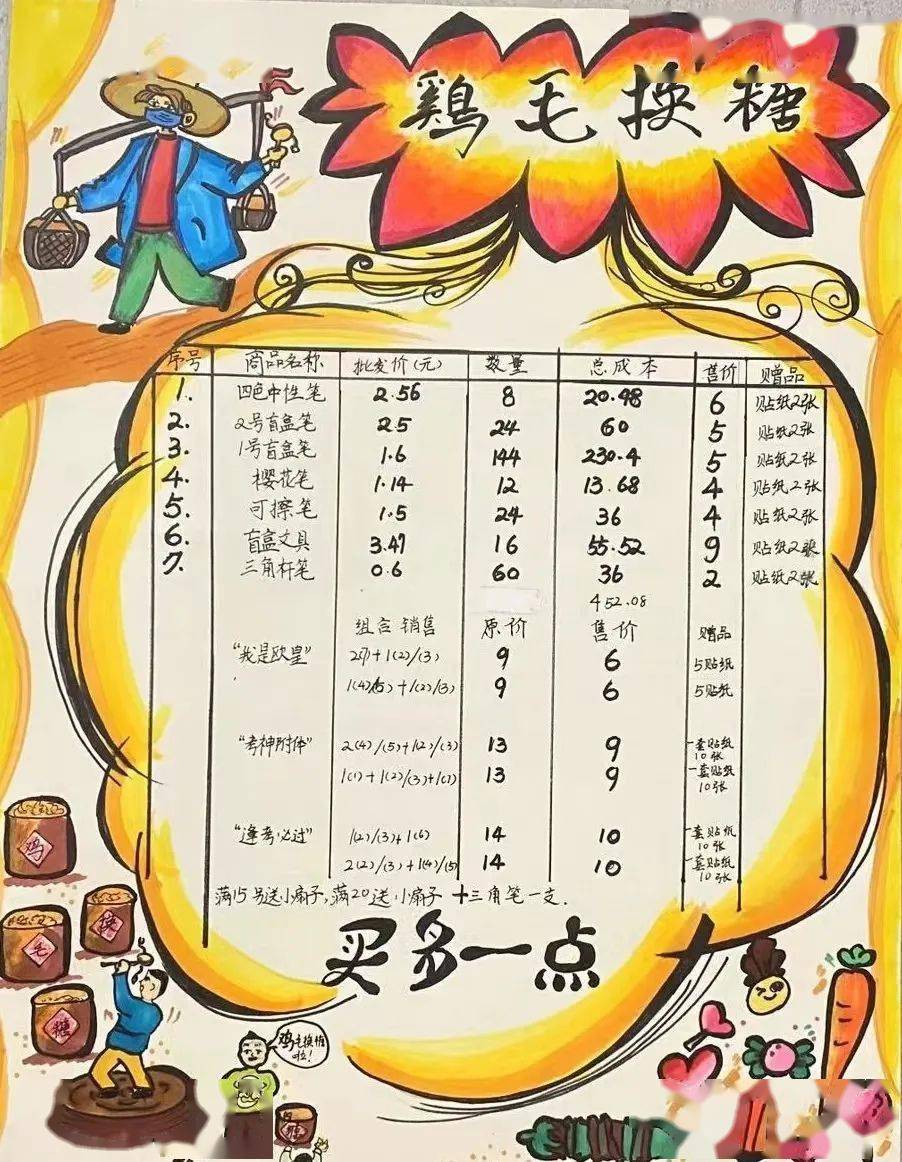 鷄毛换糖
序号 商品名称 批发价(元) 数量 总成本 售价 赠品
1. 四色中性笔 2.56 8 20.48 6 贴纸2张
2. 2号盲盒笔 2.5 24 60 5 贴纸2张
3. 1号盲盒笔 1.6 144 230.4 5 贴纸2张
4. 樱花笔 1.14 12 13.68 4 贴纸2张
5. 可擦笔 1.5 24 36 4 贴纸2张
6. 盲盒文具 3.47 16 55.52 9 贴纸2张
7. 三角杆笔 0.6 60 36 2 贴纸2张
452.08
组合销售 原价 售价 赠品
"我是欧皇" 2(7)+1(2)/(3) 9 6 5贴纸
1(4)/(5)+1(2)/(3) 9 6 5贴纸
"考神附体" 2(4)/(5)+1(2)/(3) 13 9 一套贴纸10张
1(1)+1(2)/(3)+1(7) 13 9 一套贴纸10张
"逢考必过" 1(2)/(3)+1(6) 14 10 一套贴纸10张
2(2)/(3)+1(4)/(5) 14 10 一套贴纸10张
满15号送小扇子,满20送小扇子+三角笔一支.
买多一点
鸡
毛
换
糖
鸡毛换糖
啦!